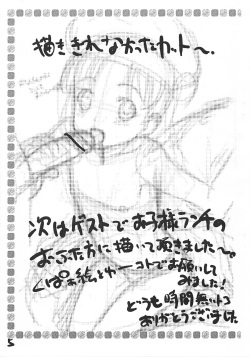 描ききれなかったカット〜.
次はゲストでお子様ランチの
おぶた方に描いて頂きました〜。
くぱぁ絵とゆーコトでお願いして
みました!
どうも時間無いトコ
ありがとうございました
5